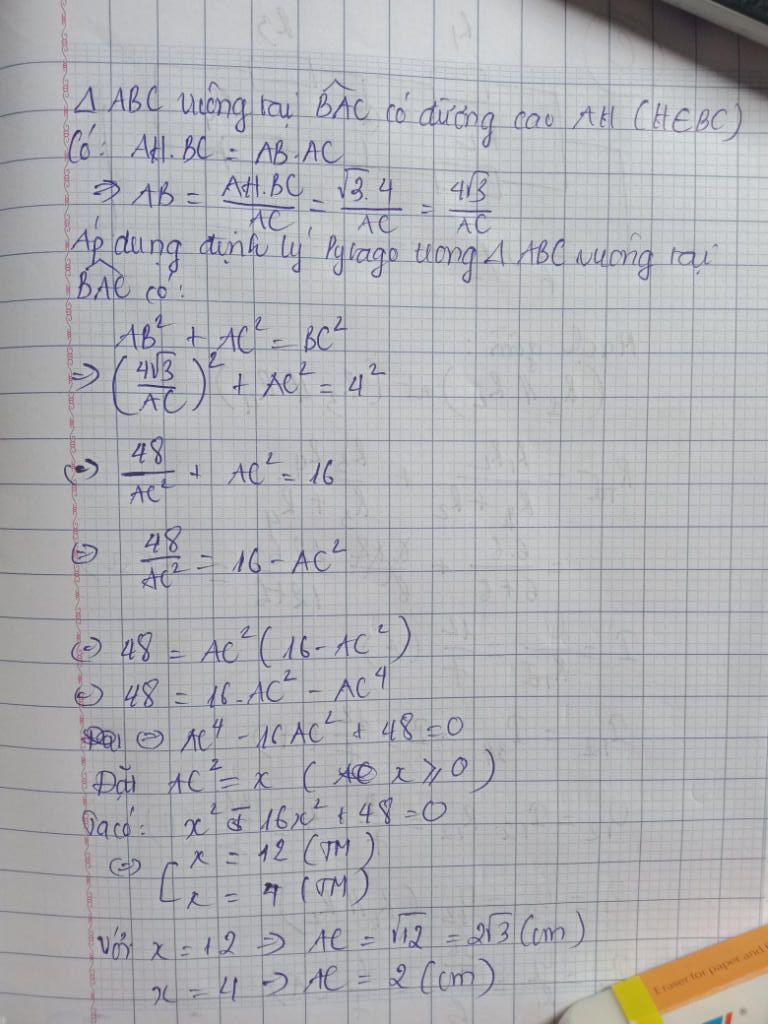 Δ ABC vuông tại \widehat{BAC} có đường cao AH (H∈BC)
Có: AH.BC = AB.AC
⇒ AB = \frac{AH.BC}{AC} = \frac{√3.4}{AC} = \frac{4√3}{AC}
Áp dụng định lý Pytago trong Δ ABC vuông tại
\widehat{BAC} có:
AB² + AC² = BC²
⇒ (\frac{4√3}{AC})² + AC² = 4²
⇔ \frac{48}{AC²} + AC² = 16
⇔ \frac{48}{AC²} = 16 - AC²
⇔ 48 = AC² (16 - AC²)
⇔ 48 = 16.AC² - AC⁴
⇔ AC⁴ - 16AC² + 48 = 0
Đặt AC² = x ( x ⩾ 0 )
Ta có: x² - 16x² + 48 = 0
⇔ [ x = 12 (TM)
x = 4 (TM)
Với x = 12 ⇒ AC = √12 = 2√3 (cm)
x = 4 ⇒ AC = 2 (cm)
Eraser for paper and